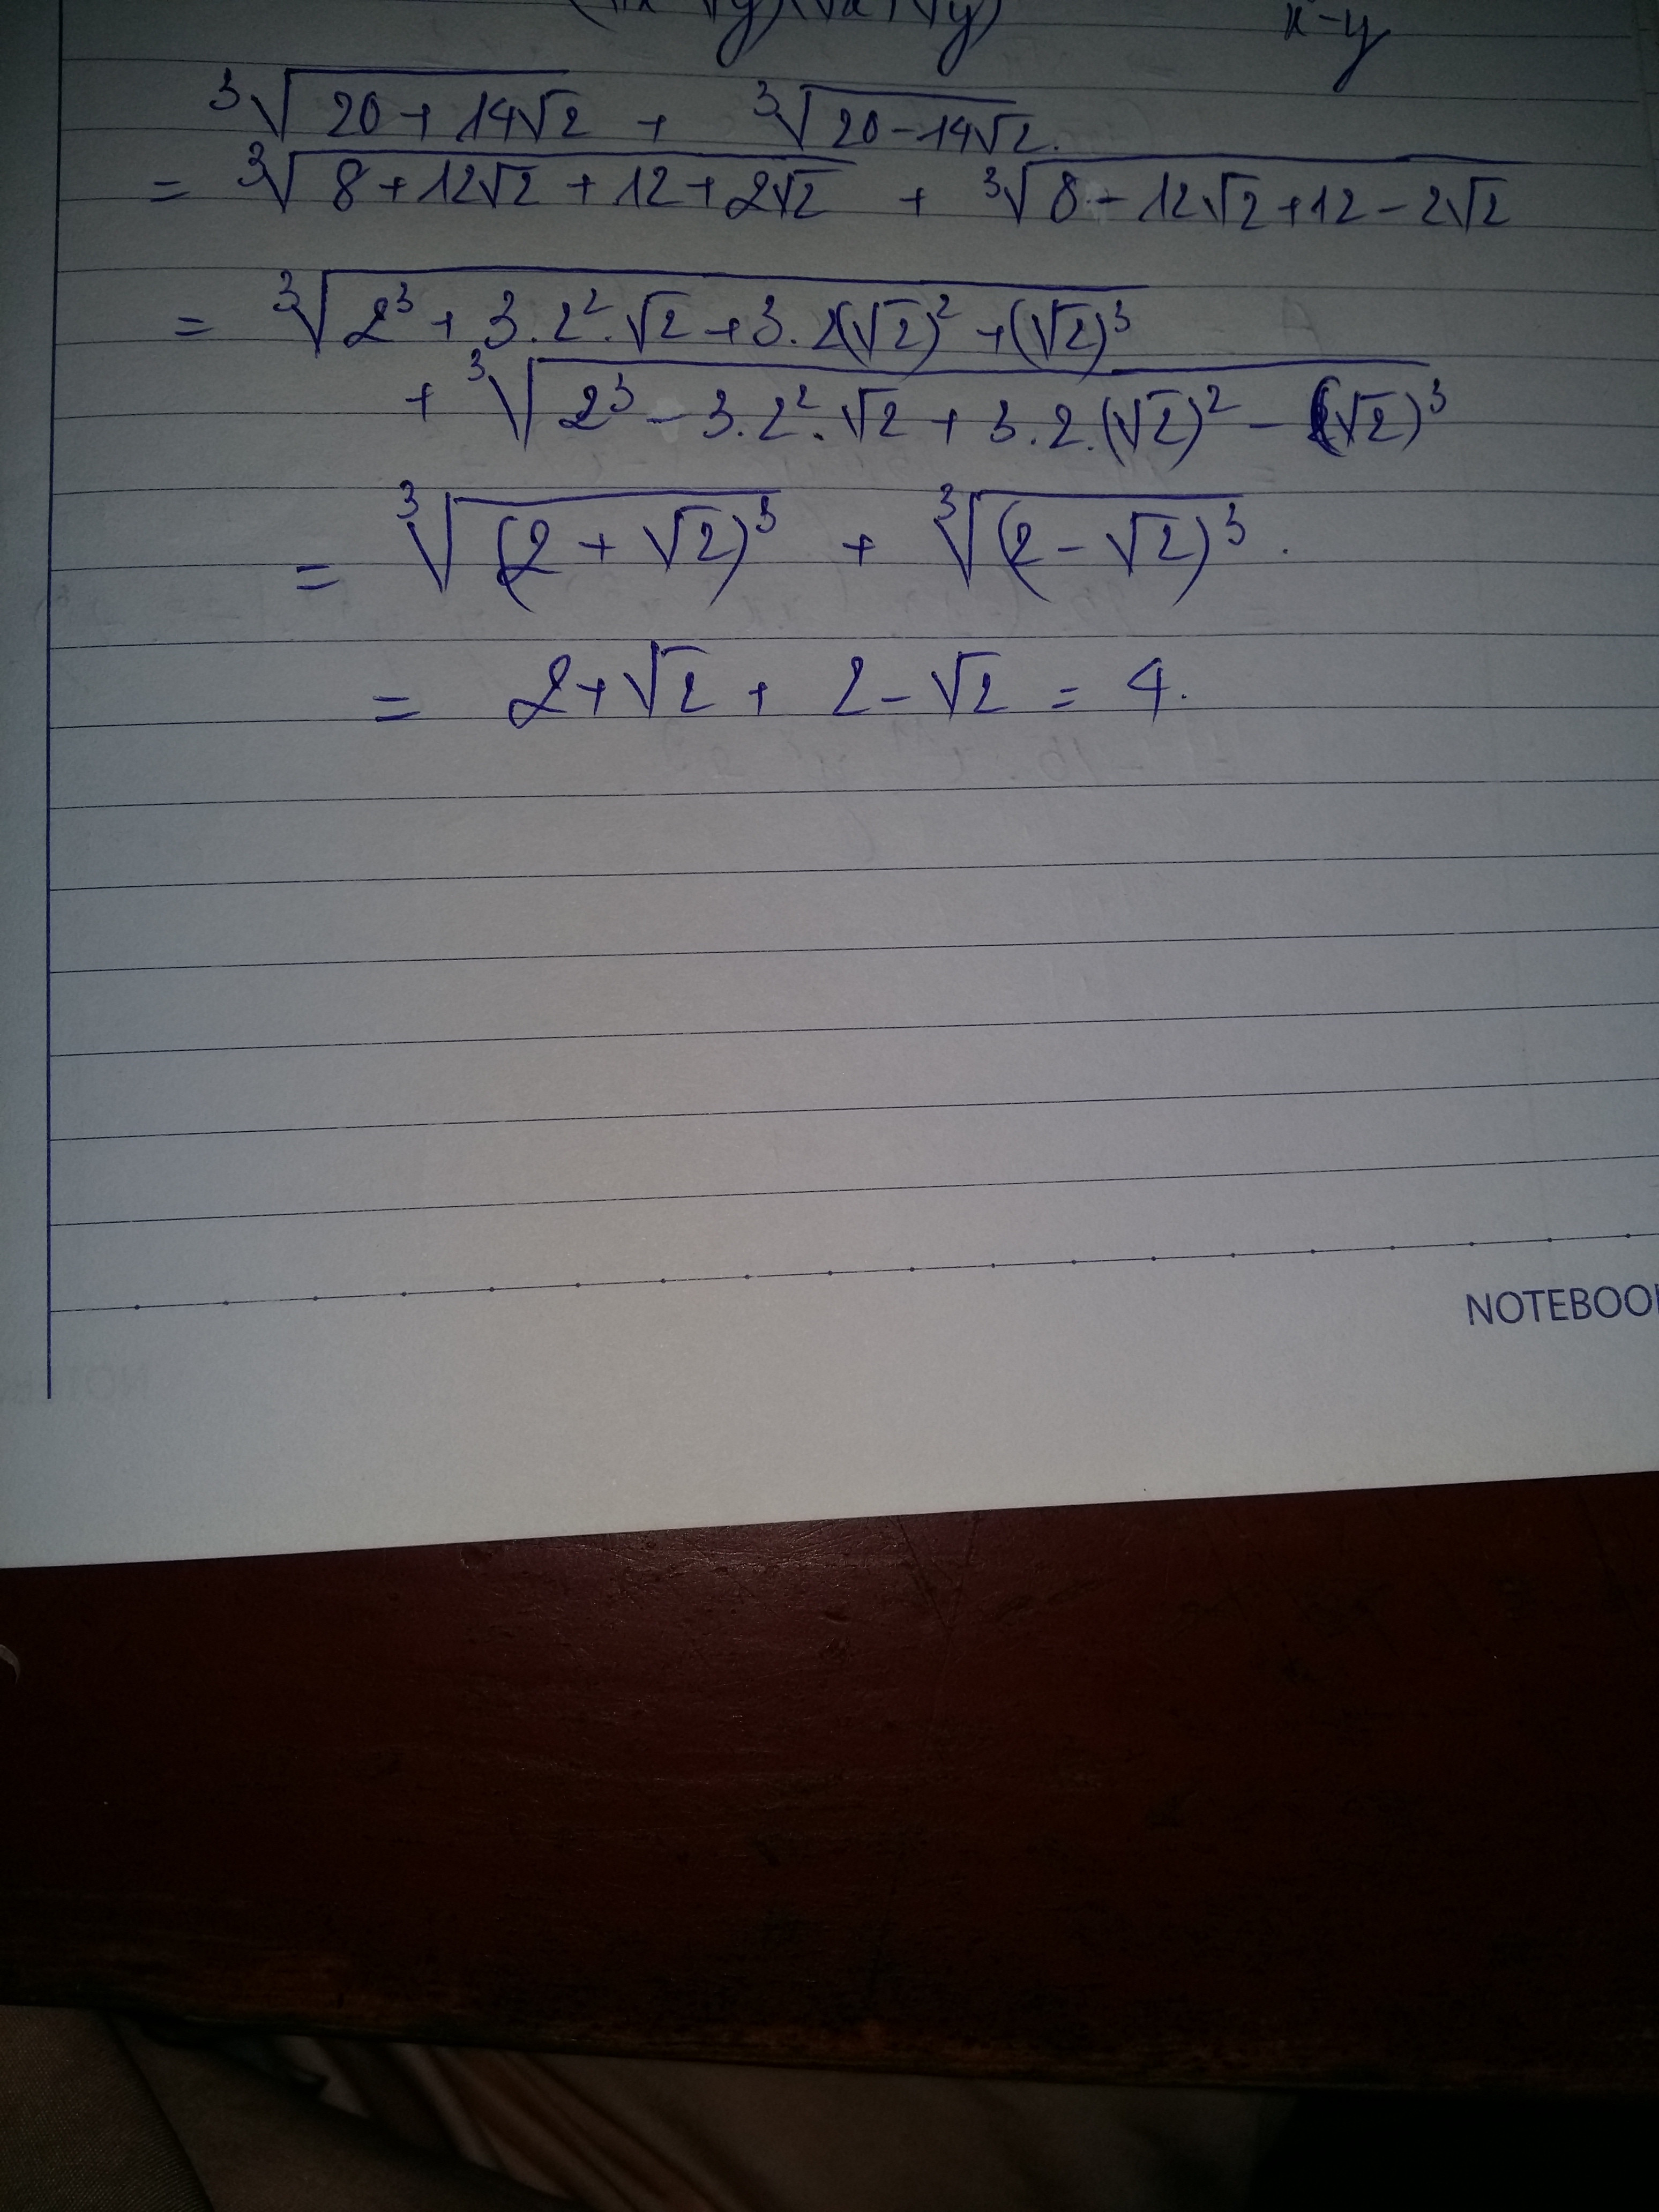 x-y
∛(20+14√2) + ∛(20-14√2).
= ∛(8+12√2+12+2√2) + ∛(8-12√2+12-2√2)
= ∛(2³+3.2².√2+3.2(√2)²+(√2)³)
+ ∛(2³-3.2².√2+3.2.(√2)²-(√2)³)
= ∛((2+√2)³) + ∛((2-√2)³).
= 2+√2 + 2-√2 = 4.